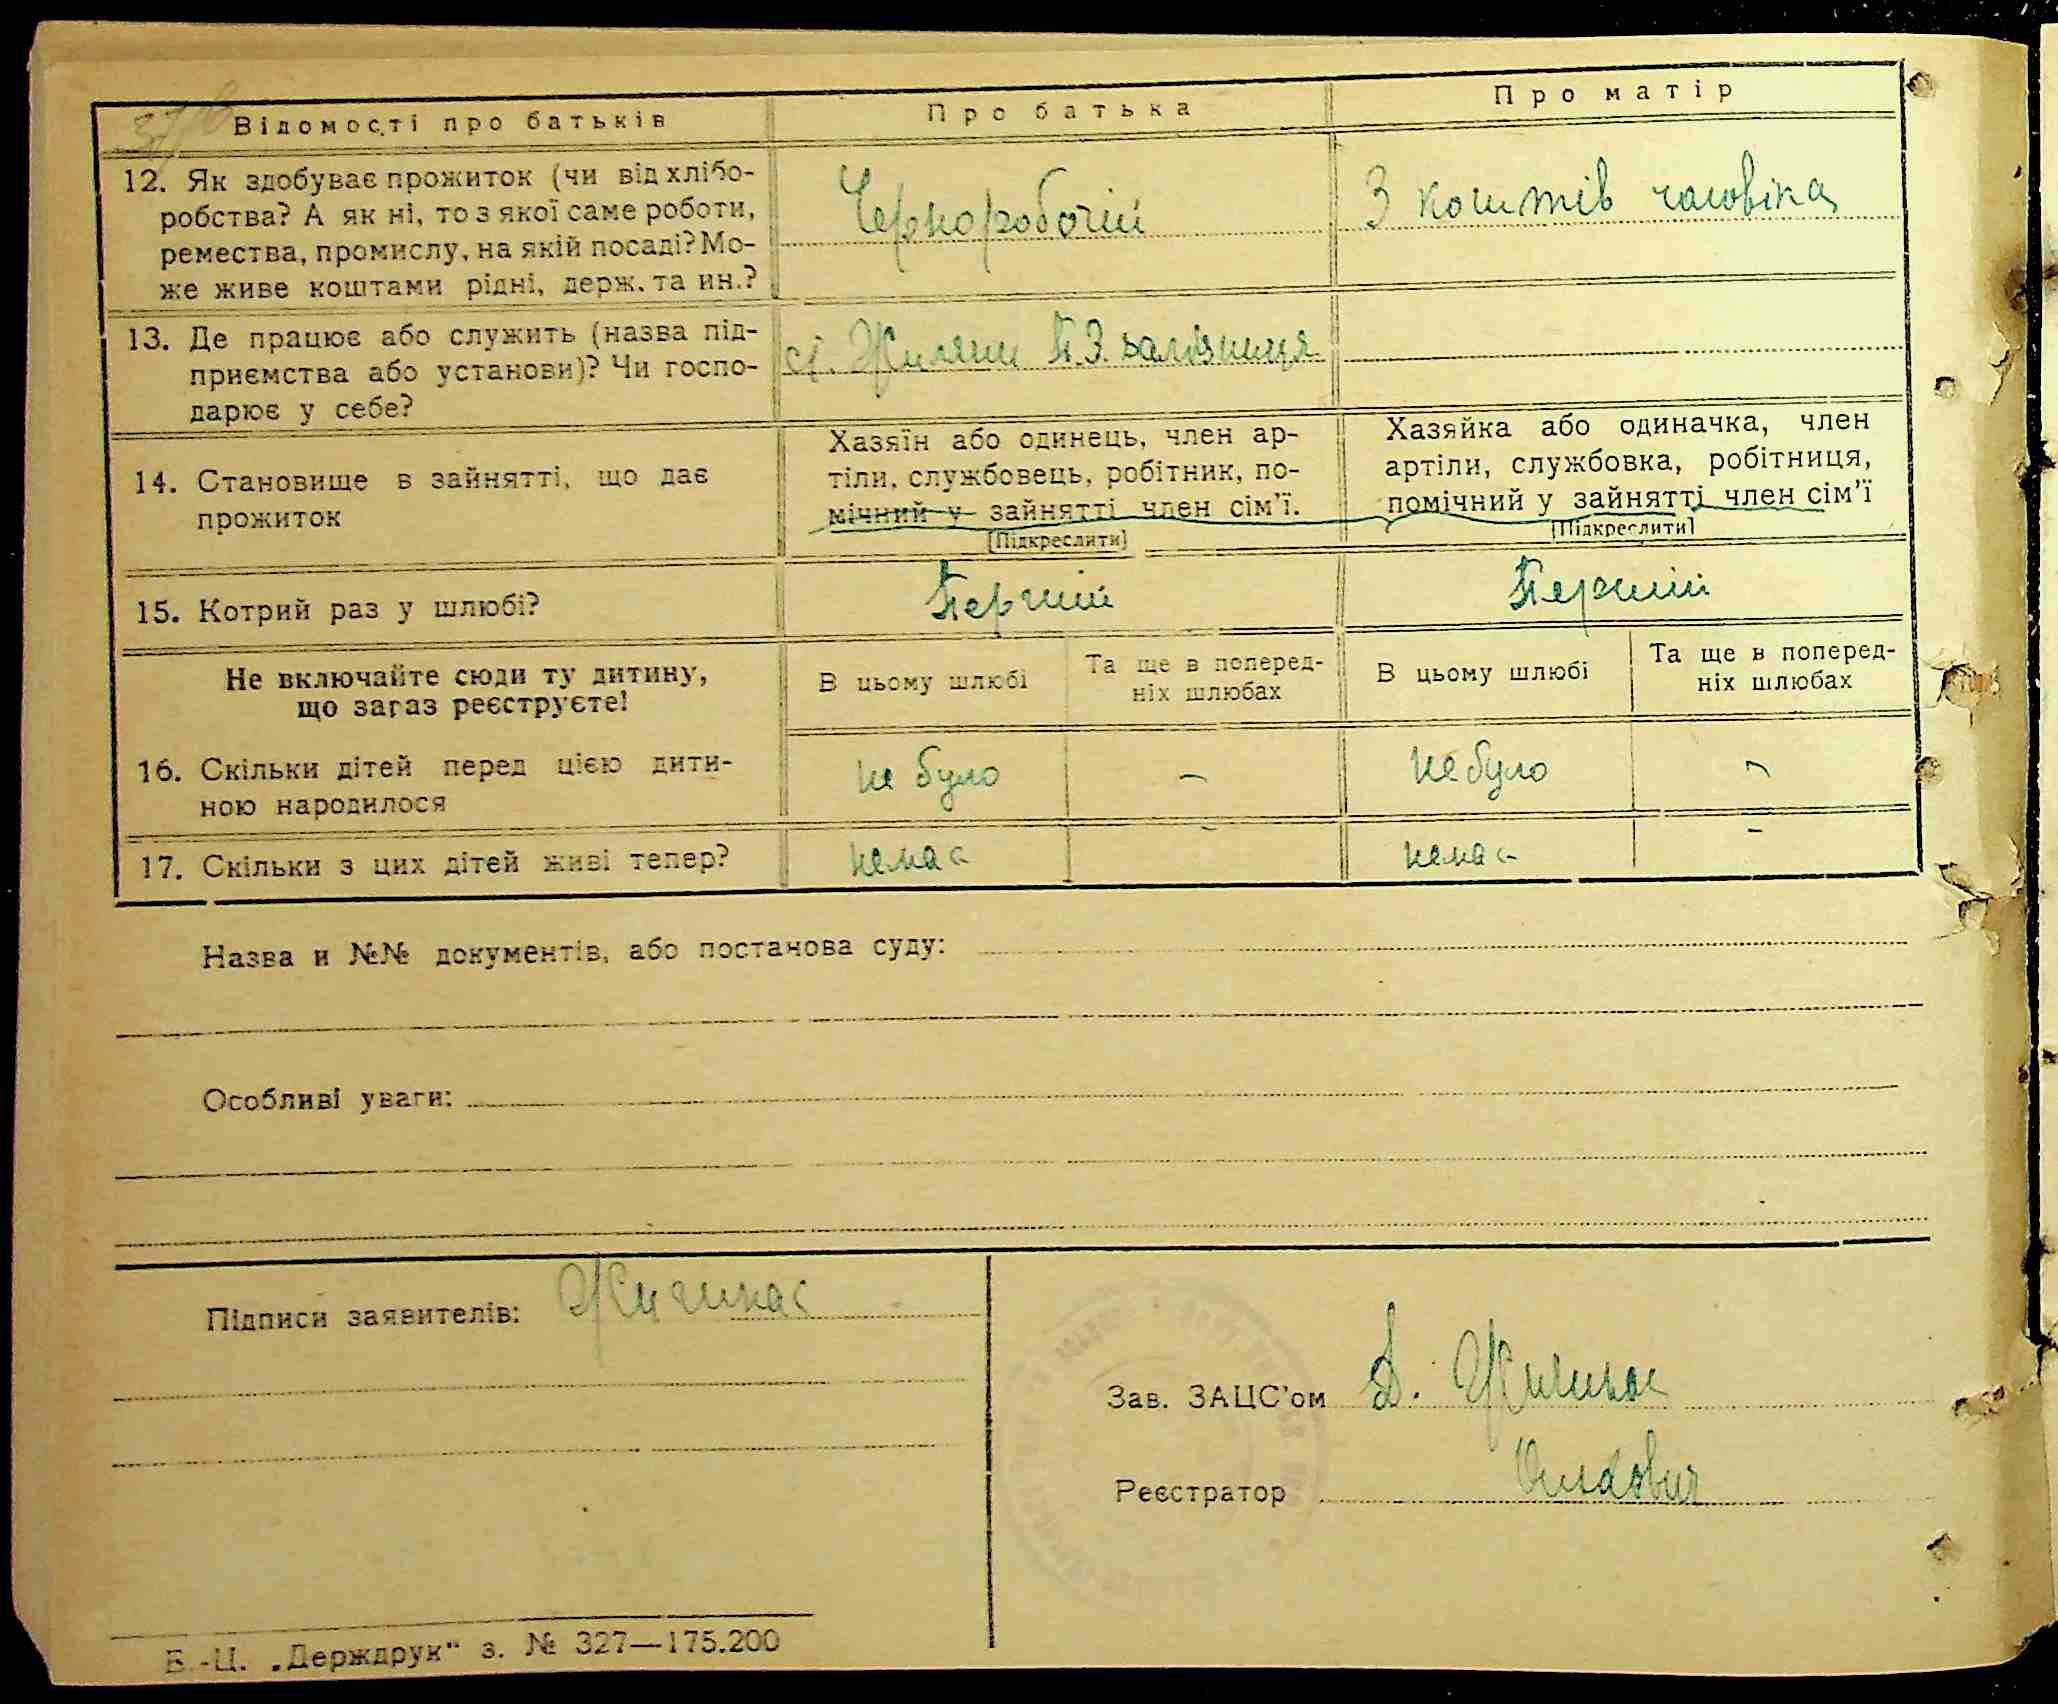 Відомості про батьків Про батька Про матір
12. Як здобуває прожиток (чи від хлібо-
робства? А як ні, то з якої саме роботи,
ремества, промислу, на якій посаді? Мо-
же живе коштами рідні, держ. та ин.?
Чорноробочий
З коштів чоловіка
13. Де працює або служить (назва під-
приємства або установи)? Чи госпо-
дарює у себе?
ст. Жуляни П.З. залізниця
14. Становище в зайнятті, що дає
прожиток
Хазяїн або одинець, член ар-
тіли, службовець, робітник, по-
мічний у зайнятті член сім'ї.
[Підкреслити]
Хазяйка або одиначка, член
артіли, службовка, робітниця,
помічний у зайнятті член сім'ї
[Підкреслити]
15. Котрий раз у шлюбі? Перший Перший
Не включайте сюди ту дитину,
що зараз реєструєте!
В цьому шлюбі
Та ще в поперед-
ніх шлюбах
В цьому шлюбі
Та ще в поперед-
ніх шлюбах
16. Скільки дітей перед цією дити-
ною народилося
не було – не було –
17. Скільки з цих дітей живі тепер? немає – немає –
Назва и №№ документів, або постанова суду:
Особливі уваги:
Підписи заявителів:
Зав. ЗАЦС'ом
Реєстратор
Б.-Ц. „Держдрук" з. № 327—175.200